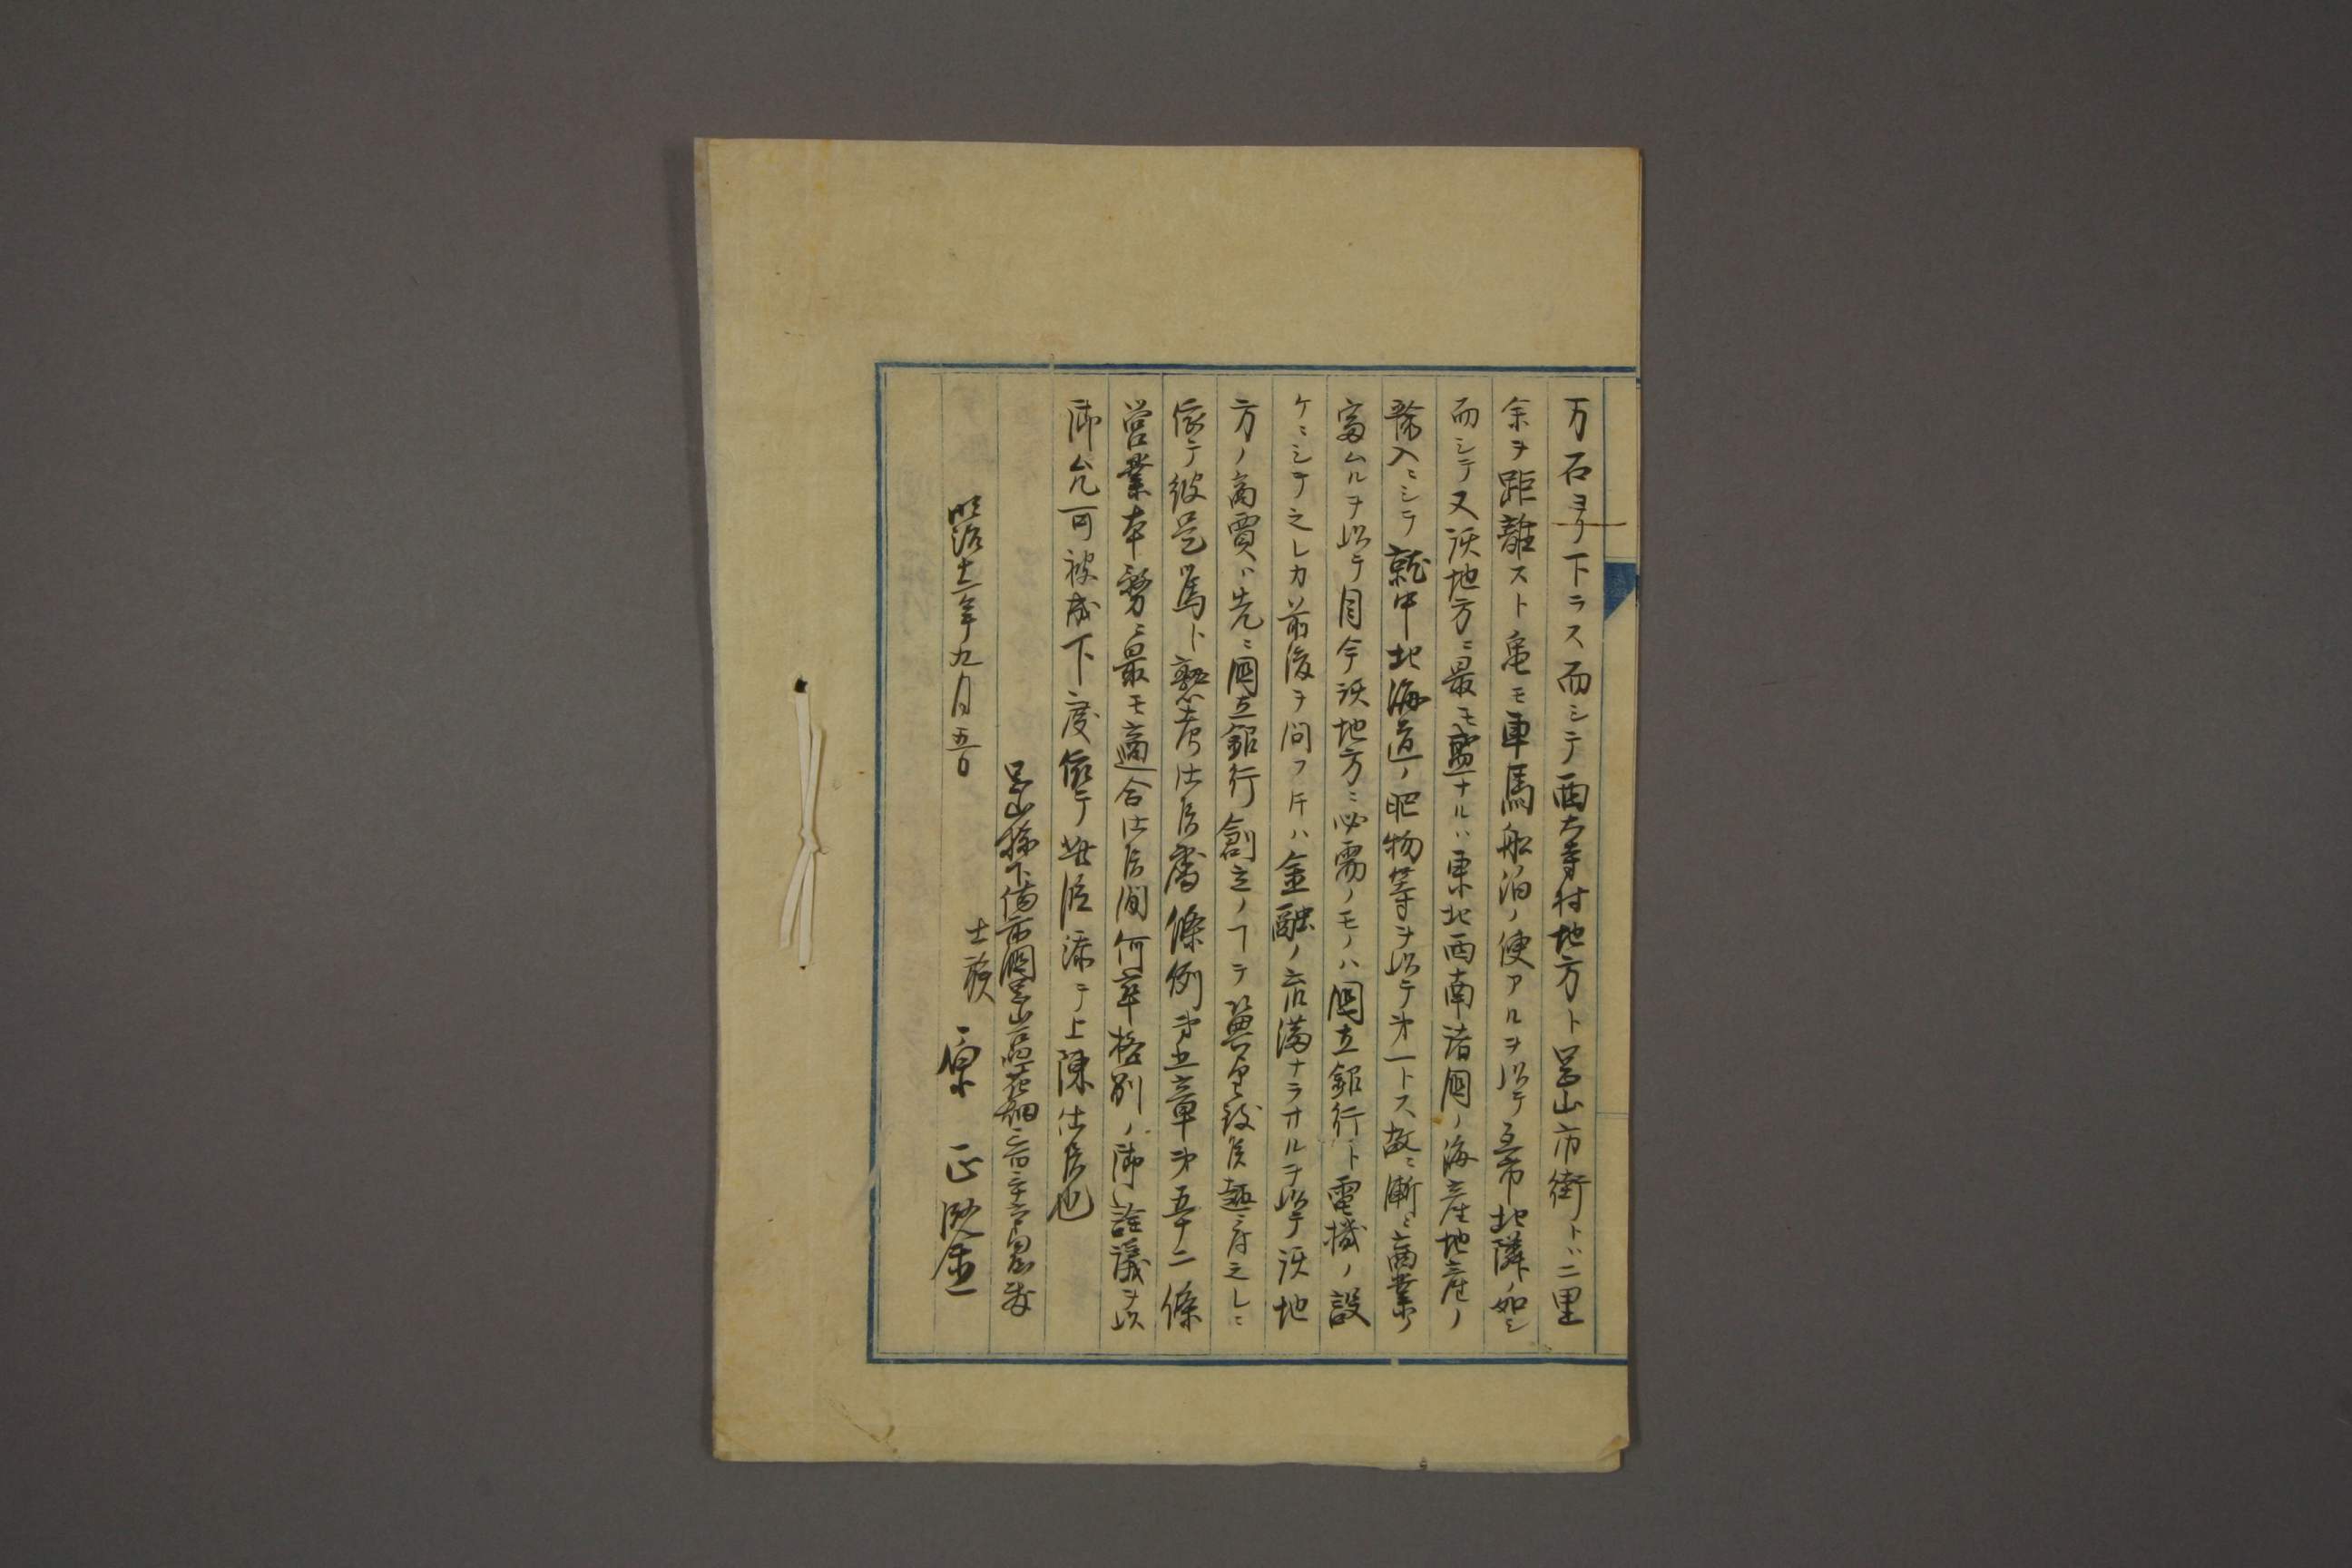 万石ヨリ下ラス而シテ西大寺村地方ト岡山市街トハ二里
余ヲ距離スト亀モ車馬船泊ノ便アルヲ以テ互市比隣ノ如シ
而シテ又該地方ニ最モ盛ナルハ東北西南諸国ノ海産地産ノ
輸入ニシテ就中北海道ノ肥物等ヲ以テ第一トス故ニ漸ニ商業ノ
富ムルヲ以テ目今該地方ニ必需ノモノハ国立銀行ト電機ノ設
ケニシテ之レカ前後ヲ問フ片ハ金融ノ充満ナラサルヲ以テ該地
方ノ商賈ハ先ニ国立銀行創立ノ了ヲ冀望致候趣ニ有之レニ
依テ彼是篤ト熟考仕候処條例第五章第五十二條
営業本務ニ最モ適合仕候間何卒格別ノ御詮議ヲ以
御允可被成下度依テ此段添テ上陳仕候也
岡山縣下備前国岡山区花畑三百三十六番邸
士族
原 正
明治十一年九月五日